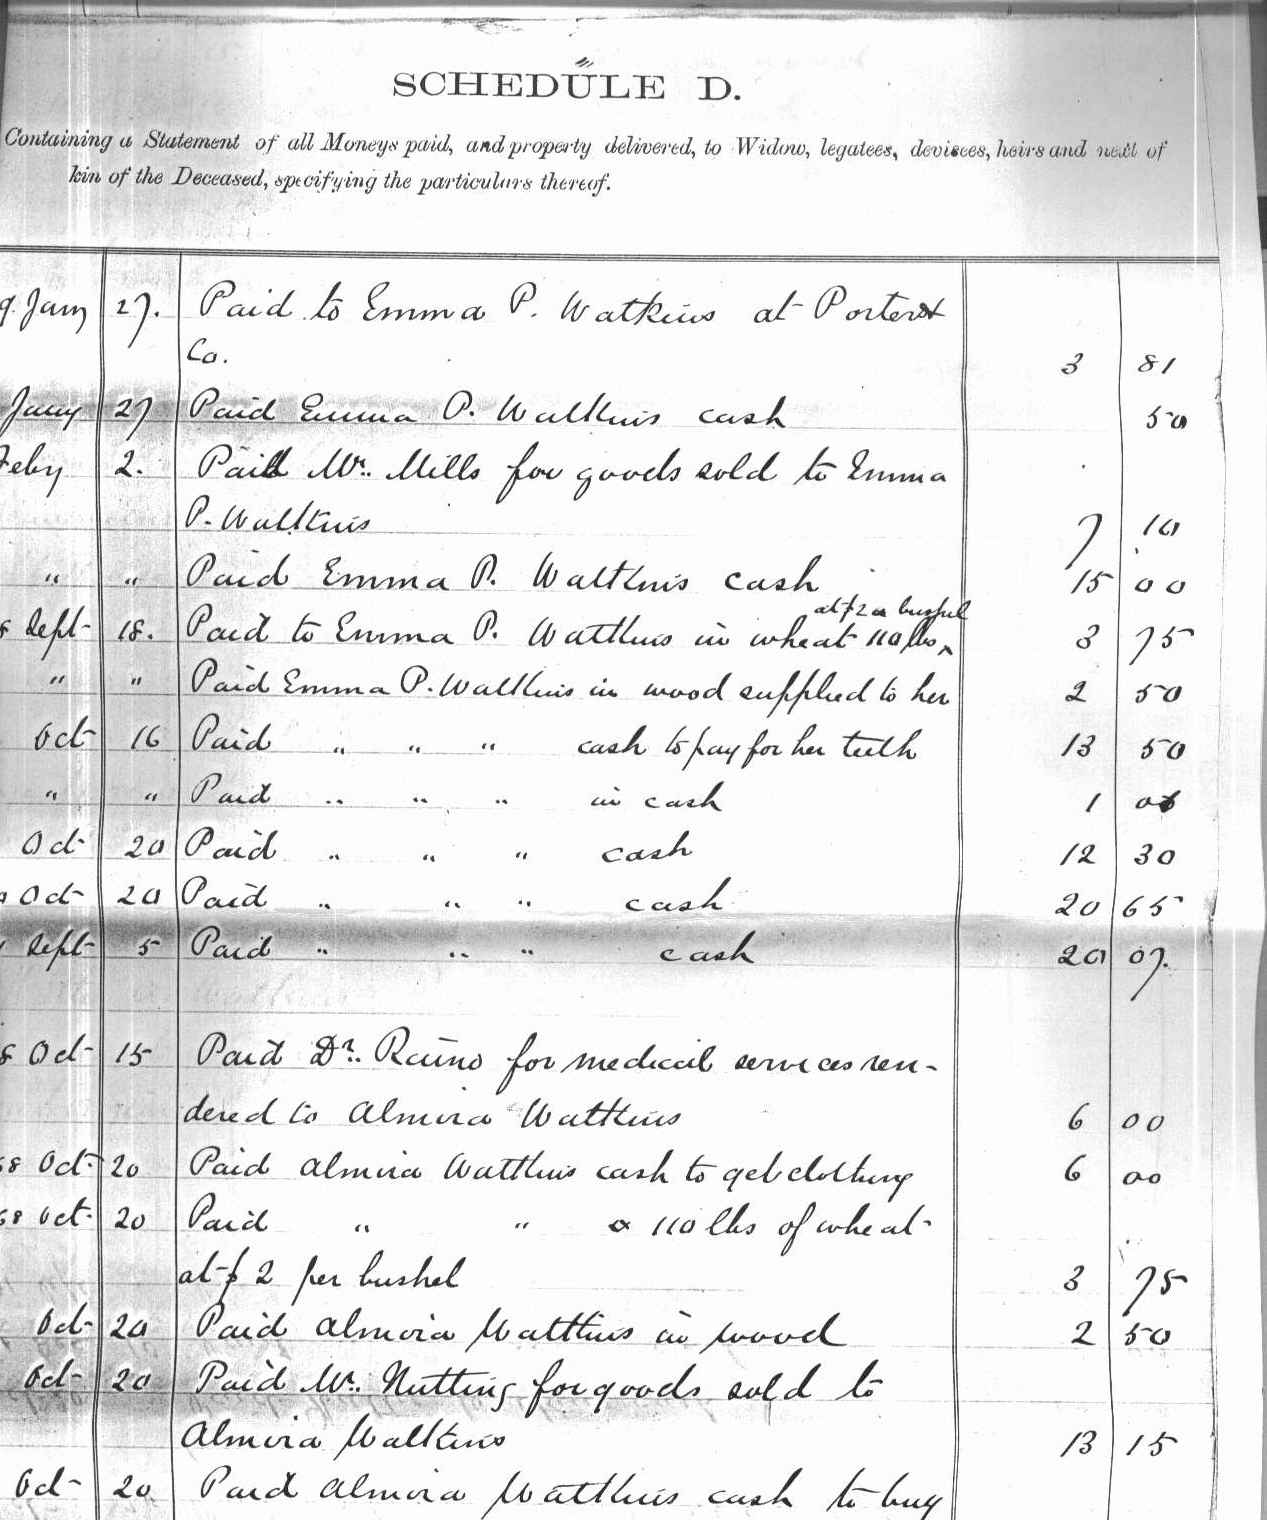 SCHEDULE D.
Containing a Statement of all Moneys paid, and property delivered, to Widow, legatees, devisees, heirs and next of
kin of the Deceased, specifying the particulars thereof.
9. Jany 27. Paid to Emma P. Watkins at Porter &
Co. 3 81
Jany 27 Paid Emma P. Watkins cash 50
Feby 2. Paid Mr. Mills for goods sold to Emma
P. Watkins 7 10
" " Paid Emma P. Watkins cash 15 00
at $2 a bushel
8 Sept 18. Paid to Emma P. Watkins in wheat 110 lbs ^ 3 75
" " Paid Emma P. Watkins in wood supplied to her 2 50
Oct 16 Paid " " " cash to pay for her teeth 13 50
" " Paid " " " in cash 1 00
Oct 20 Paid " " " cash 12 30
Oct 20 Paid " " " cash 20 65
Sept 5 Paid " " " cash 20 07.
8 Oct 15 Paid Dr. for medical services ren-
dered to Almira Watkins 6 00
68 Oct 20 Paid Almira Watkins cash to get clothing 6 00
68 Oct. 20 Paid " " 110 lbs of wheat
at $2 per bushel 3 75
Oct 20 Paid Almira Watkins in wood 2 50
Oct 20 Paid Mr. Nutting for goods sold to
Almira Watkins 13 15
Oct 20 Paid Almira Watkins cash to buy